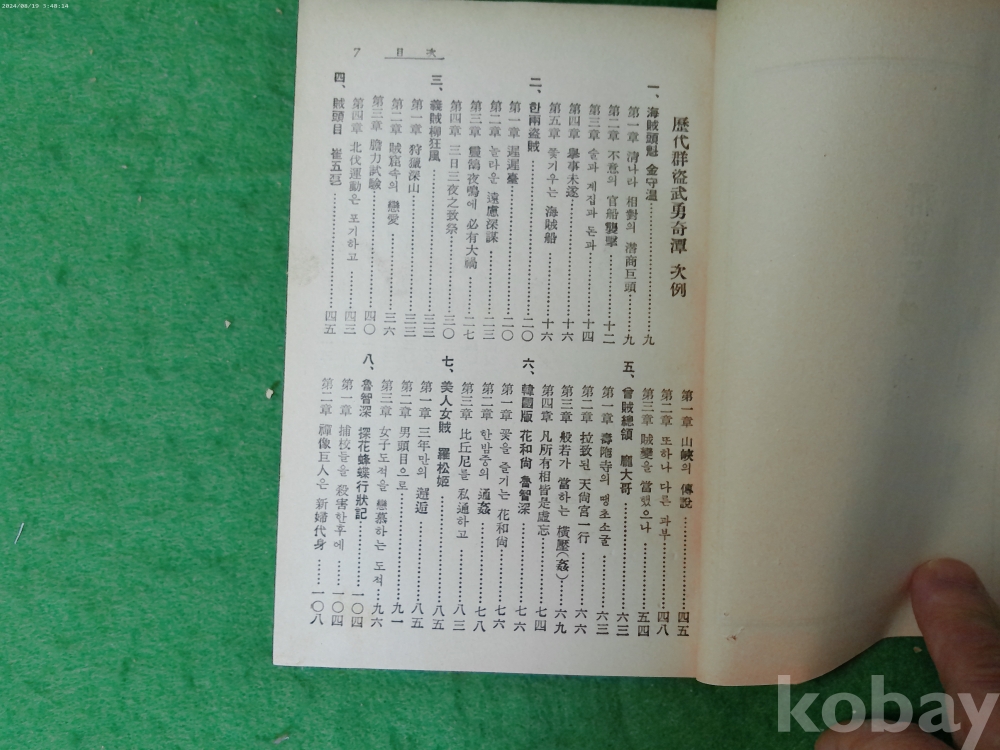 2024/08/19 3:48:14
7 目次
歷代群盜武勇奇潭 次例
一、海賊頭魁 金守溫……九
第一章 清나라 相對의 潛商巨頭……九
第二章 不意의 官船襲擊……十二
第三章 술과 계집과 돈과……十四
第四章 擧事未遂……十六
第五章 꽃기우는 海賊船……十六
二、한兩盜賊……二〇
第一章 遲遲臺……二〇
第二章 놀라운 遠慮深謀……二三
第三章 靈鵲夜鳴에 必有大禍……二七
第四章 三日三夜之致祭……三〇
三、義賊柳狂風……三三
第一章 狩獵深山……三三
第二章 賊窟속의 戀愛……三六
第三章 膽力試驗……四〇
第四章 北伐運動은 포기하고……四三
四、賊頭目 崔五……四五
第一章 山峽의 傳說……四五
第二章 또하나 다른 과부……四八
第三章 賊變을 當했으나……五四
五、僧賊總領 龐大哥……六三
第一章 壽陁寺의 땡초소굴……六三
第二章 拉致된 天尙宮一行……六六
第三章 般若가 當하는 橫壓(姦)……六九
第四章 凡所有相皆是虛忘……七四
六、韓國版 花和尙 魯智深……七六
第一章 꽃을 즐기는 花和尙……七六
第二章 한밤중의 通姦……七八
第三章 比丘尼를 私通하고……八三
七、美人女賊 羅松姬……八五
第一章 三年만의 邂逅……八五
第二章 男頭目으로……九一
第三章 女子도적을 戀慕하는 도적……九六
八、魯智深 探花蜂蝶行狀記……一〇四
第一章 捕校들을 殺害한후에……一〇四
第二章 禪像巨人은 新婦代身……一〇八
kobay